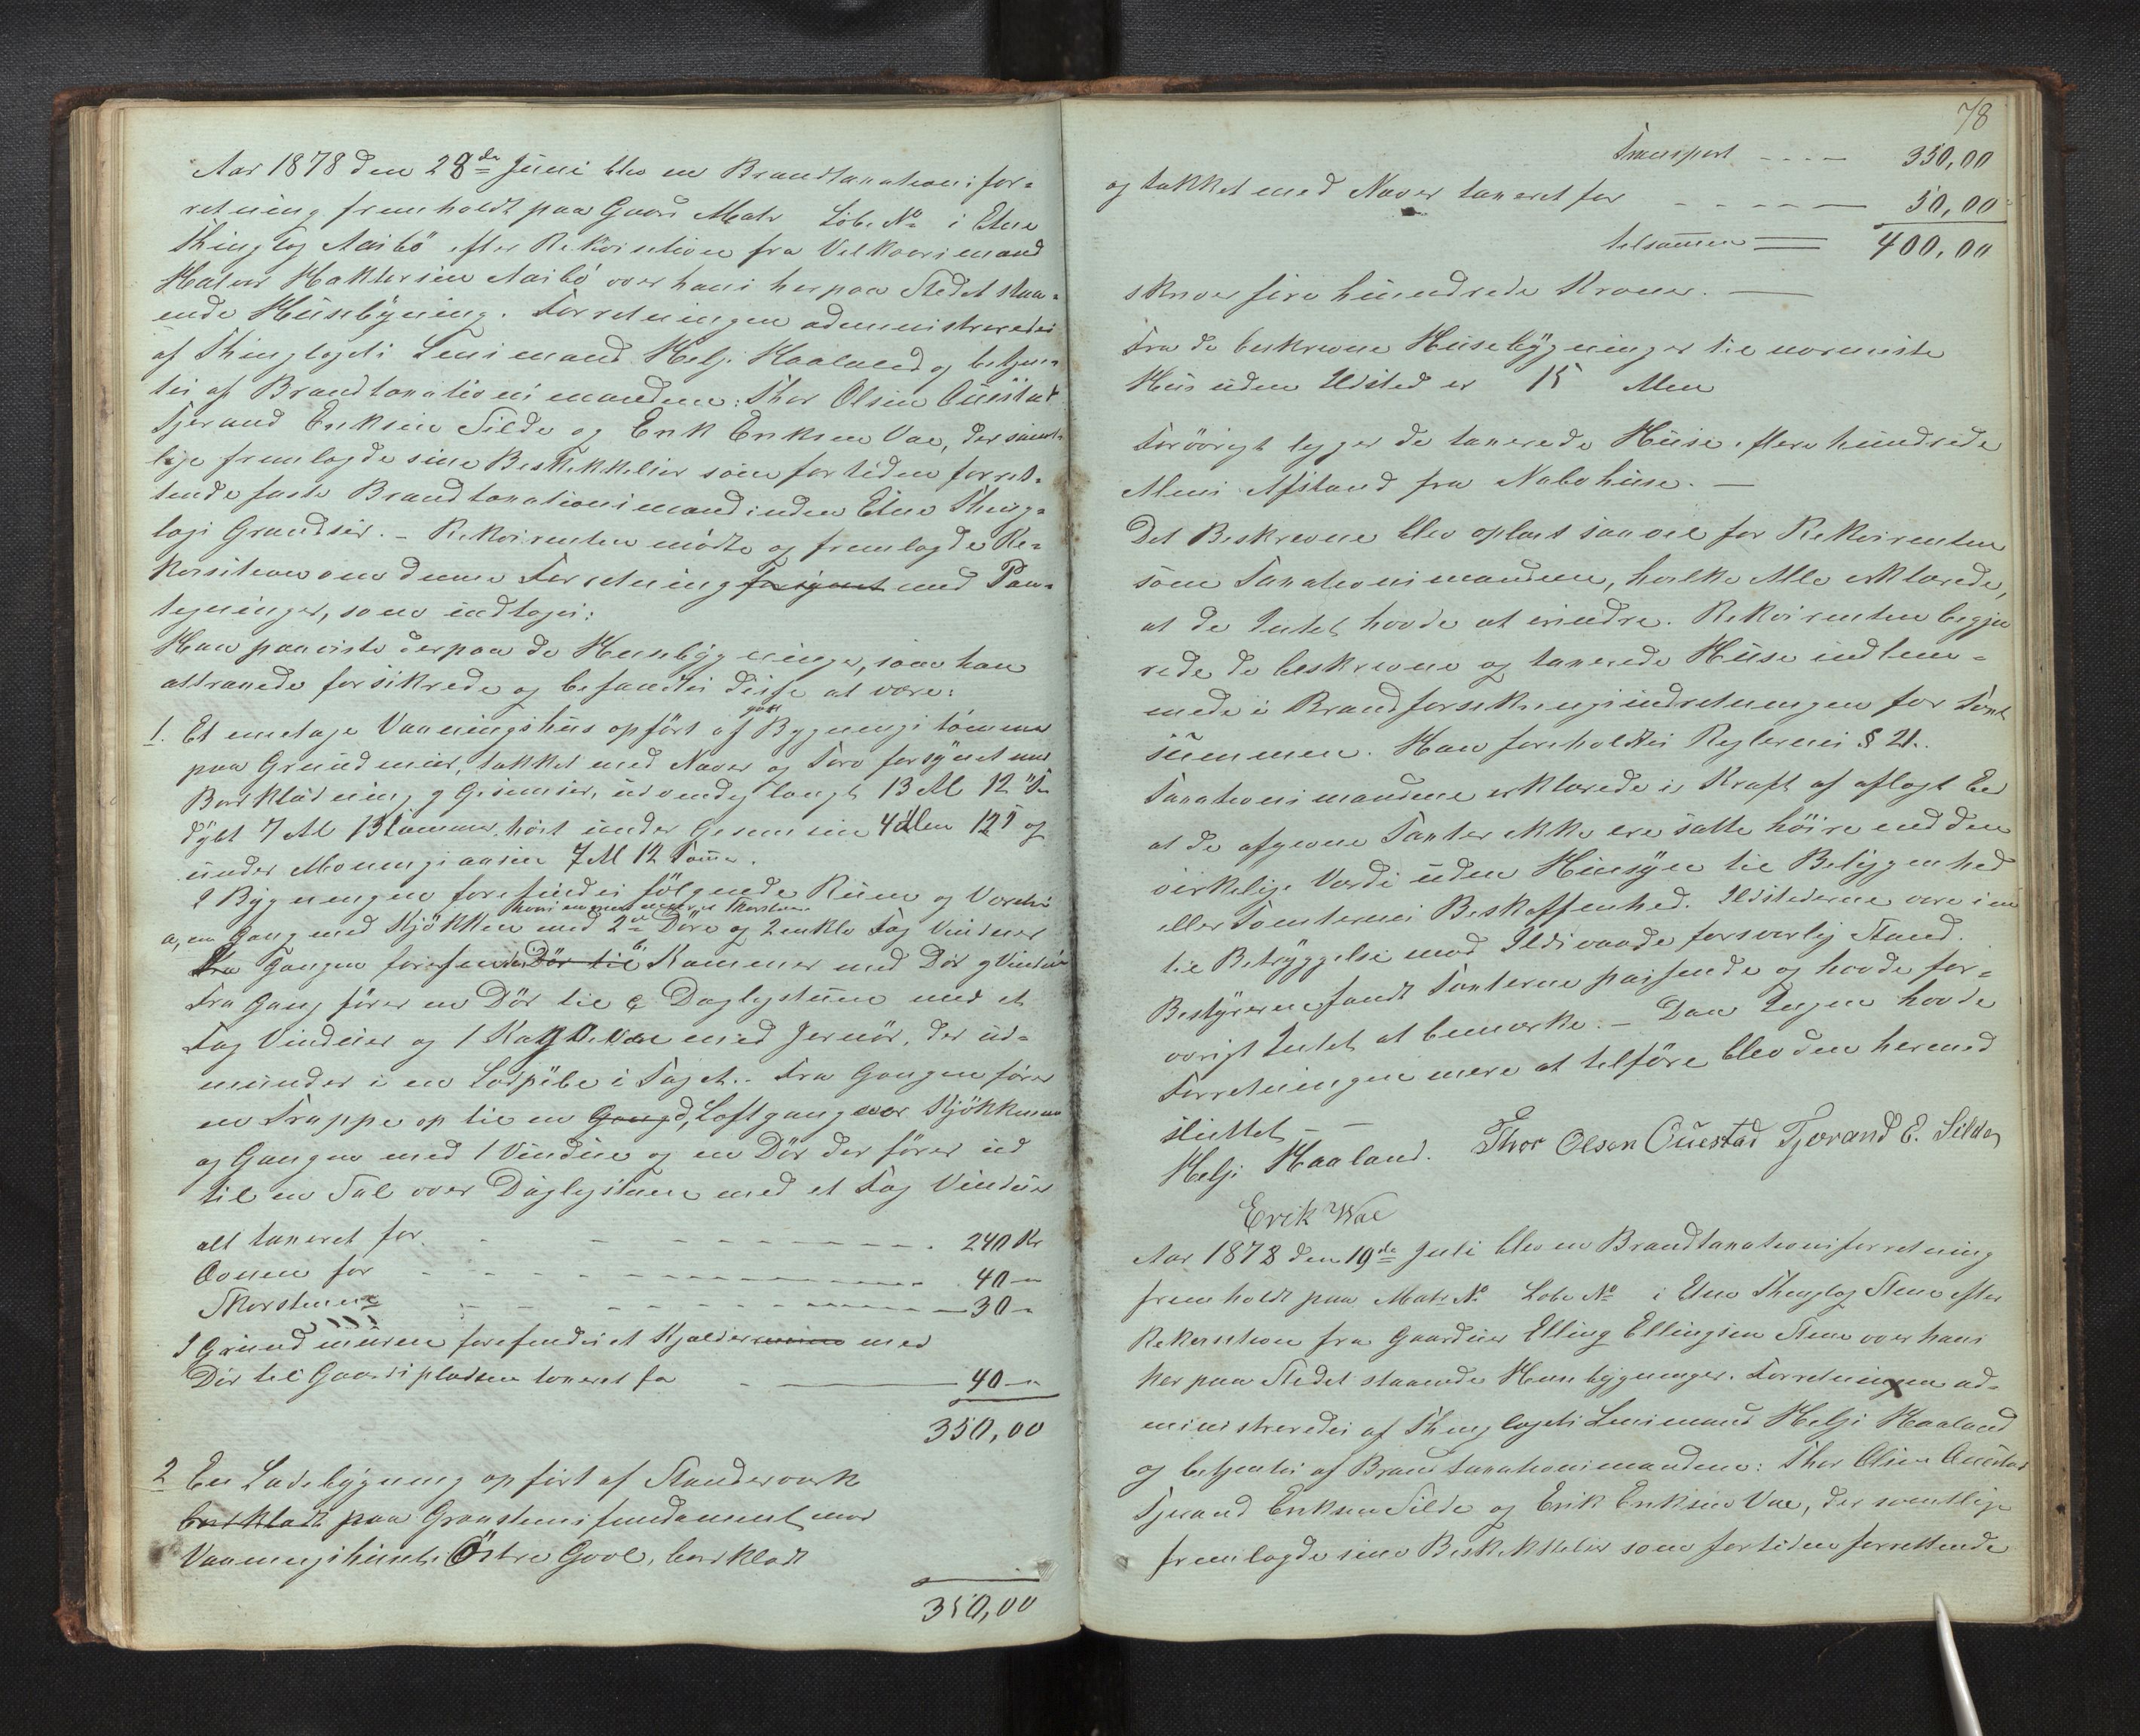 Aar 1878 den 28de Juni blev en Brandtaxationsfor-
retning fremholdt paa Gaard Matr Löbe No i Etne
Thinglag Aarbö efter Rekvisition fra Selveiermand
Halvor Aarbö over hans her paa Stedet staa-
ende Husebygning. Forretningen administreredes
af Thinglagets Lensmand Helje Haaland og betjen-
tes af Brandtaxationsmændene: Thor Olsen Öuestad
Tjerand Eriksen Silde og Erik Eriksen Vae, der samt-
lige fremlagde sine Beskikkelser som for tiden forret-
tende faste Brandtaxationsmænd inden Etne Thing-
lags Grændser. - Rekvirenten mödte og fremlagde Re-
kvisitionen om denne Forretning forsynet med Paa-
tegninger, som indtages:
Han paaviste derpaa de Husebygninger, som han
attraaede forsikrede og befandtes disse at være:
1. Et enetages Vaaningshus opfört af godt Bygningstömmer
paa Grundmur, tækket med Næver og Torv forsynet med
Bordklædning og Gesimser, udvendig langt 13 Al 12 "
dybt 7 Al 13 Tommer, höit under Gesimsen 4 Alen 12" og
under Mönningsaasen 7 Al 12 Tomme.
I Bygningen forefindes fölgende Rum og Værelser
a, en Gang med Kjökken med 2de Döre og 2 enkle Fag Vinduer
Fra Gangen forefindes Dör til b, Kammer med Dör og Vindue
Fra Gang förer en Dör til c Daglystuen med et
Fag Vinduer og 1 Kakkelovn med Jernrör, der ud-
munder i en Ladpibe i Taget. Fra Gangen förer
en Trappe op til en Gang d, Loftgang over Kjökkenet
og Gangen med 1 Vindue og en Dör der förer ind
til en Sal over Daglystuen med et Fag Vinduer
alt taxeret for - - - 240 Kr
Ovnen for - - - 40 -
Skorstenen - - - 30 -
I Grundmuren forefindes et Kjelder med
Dör til Gaardspladsen taxeret for - 40 -
350,00
2 En Ladebygning opfört af Standerværk
bordklædt paa Graastensfundament ved
Vaaningshusets Östre Gavl, bordklædt
350,00
78
Transport - - - - 350,00
og tækket med Næver taxeret for - - - - 50,00
tilsammen = 400,00
skriver fire hundrede Kroner. -
Fra de beskrevne Husebygninger til nærmeste
Hus uden Ildsted er 15 Alen
Forövrigt ligger de taxerede Huse flere hundrede
Alens Afstand fra Nabohuse. -
Det Beskrevne blev oplæst saavel for Rekvirenten
som Taxationsmændene, hvilke Alle erklærede,
at de Intet havde at erindre. Rekvirenten begjæ-
rede de beskrevne og taxerede Huse indlem-
mede i Brandforsikringsindretningen for Taxt
summen. Han foreholdtes Reglernes § 21.
Taxationsmændene erklærede i Kraft af aflagt Ed
at de afgivne Taxter ikke ere satte höire end den
virkelige Værdi uden Hensyn til Beliggenhed
eller Tomternes Beskaffenhed. Ildstederne vare i en
til Betryggelse mod Ildsvaade forsvarlig Stand.
Bestyreren fandt Taxterne passende og havde for-
övrigt Intet at bemærke. - Da Ingen havde
Forretningen mere at tilföre blev den hermed
sluttet - -
Helje Haaland. Thor Olsen Öuestad Tjerand E. Silde
Erik Wae
Aar 1878 den 19de Juli blev en Brandtaxationsforretning
fremholdt paa Matr No Löbe No i Etne Thinglag Stene efter
Rekvisition fra Gaardeier Elling Ellingsen Stene over hans
her paa Stedet staaende Husebygninger. Forretningen ad-
ministreredes af Thinglagets Lensmand Helje Haaland
og betjentes af Brandtaxationsmændene: Thor Olsen Öuestad
Tjerand Eriksen Silde og Erik Eriksen Vae, der samtlige
fremlagde sine Beskikkelser som for tiden forrettende